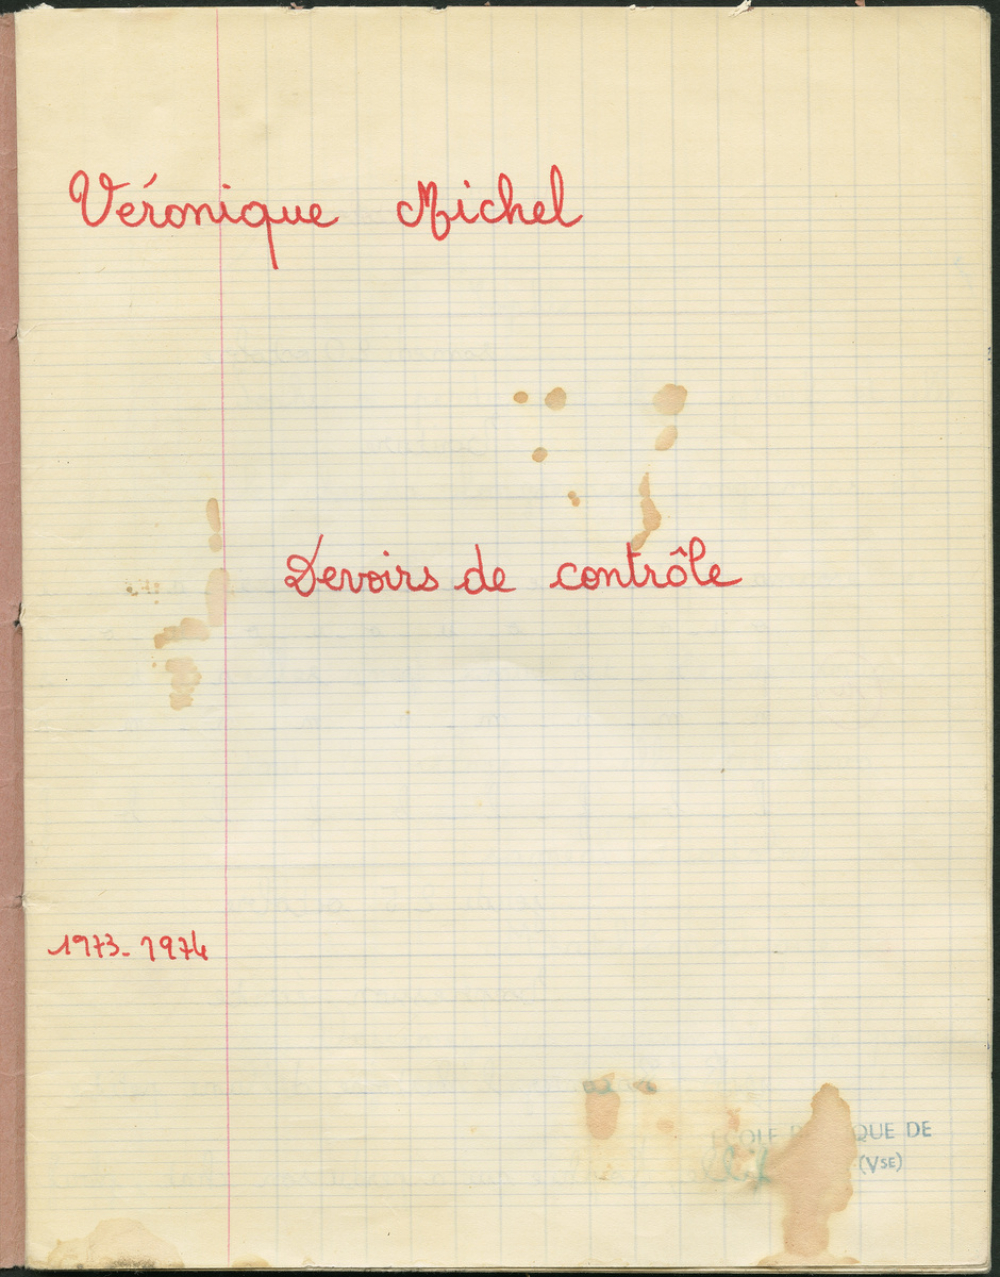 Véronique Michel
Devoirs de contrôle
1973-1974
ECOLE QUE DE
(VSE)